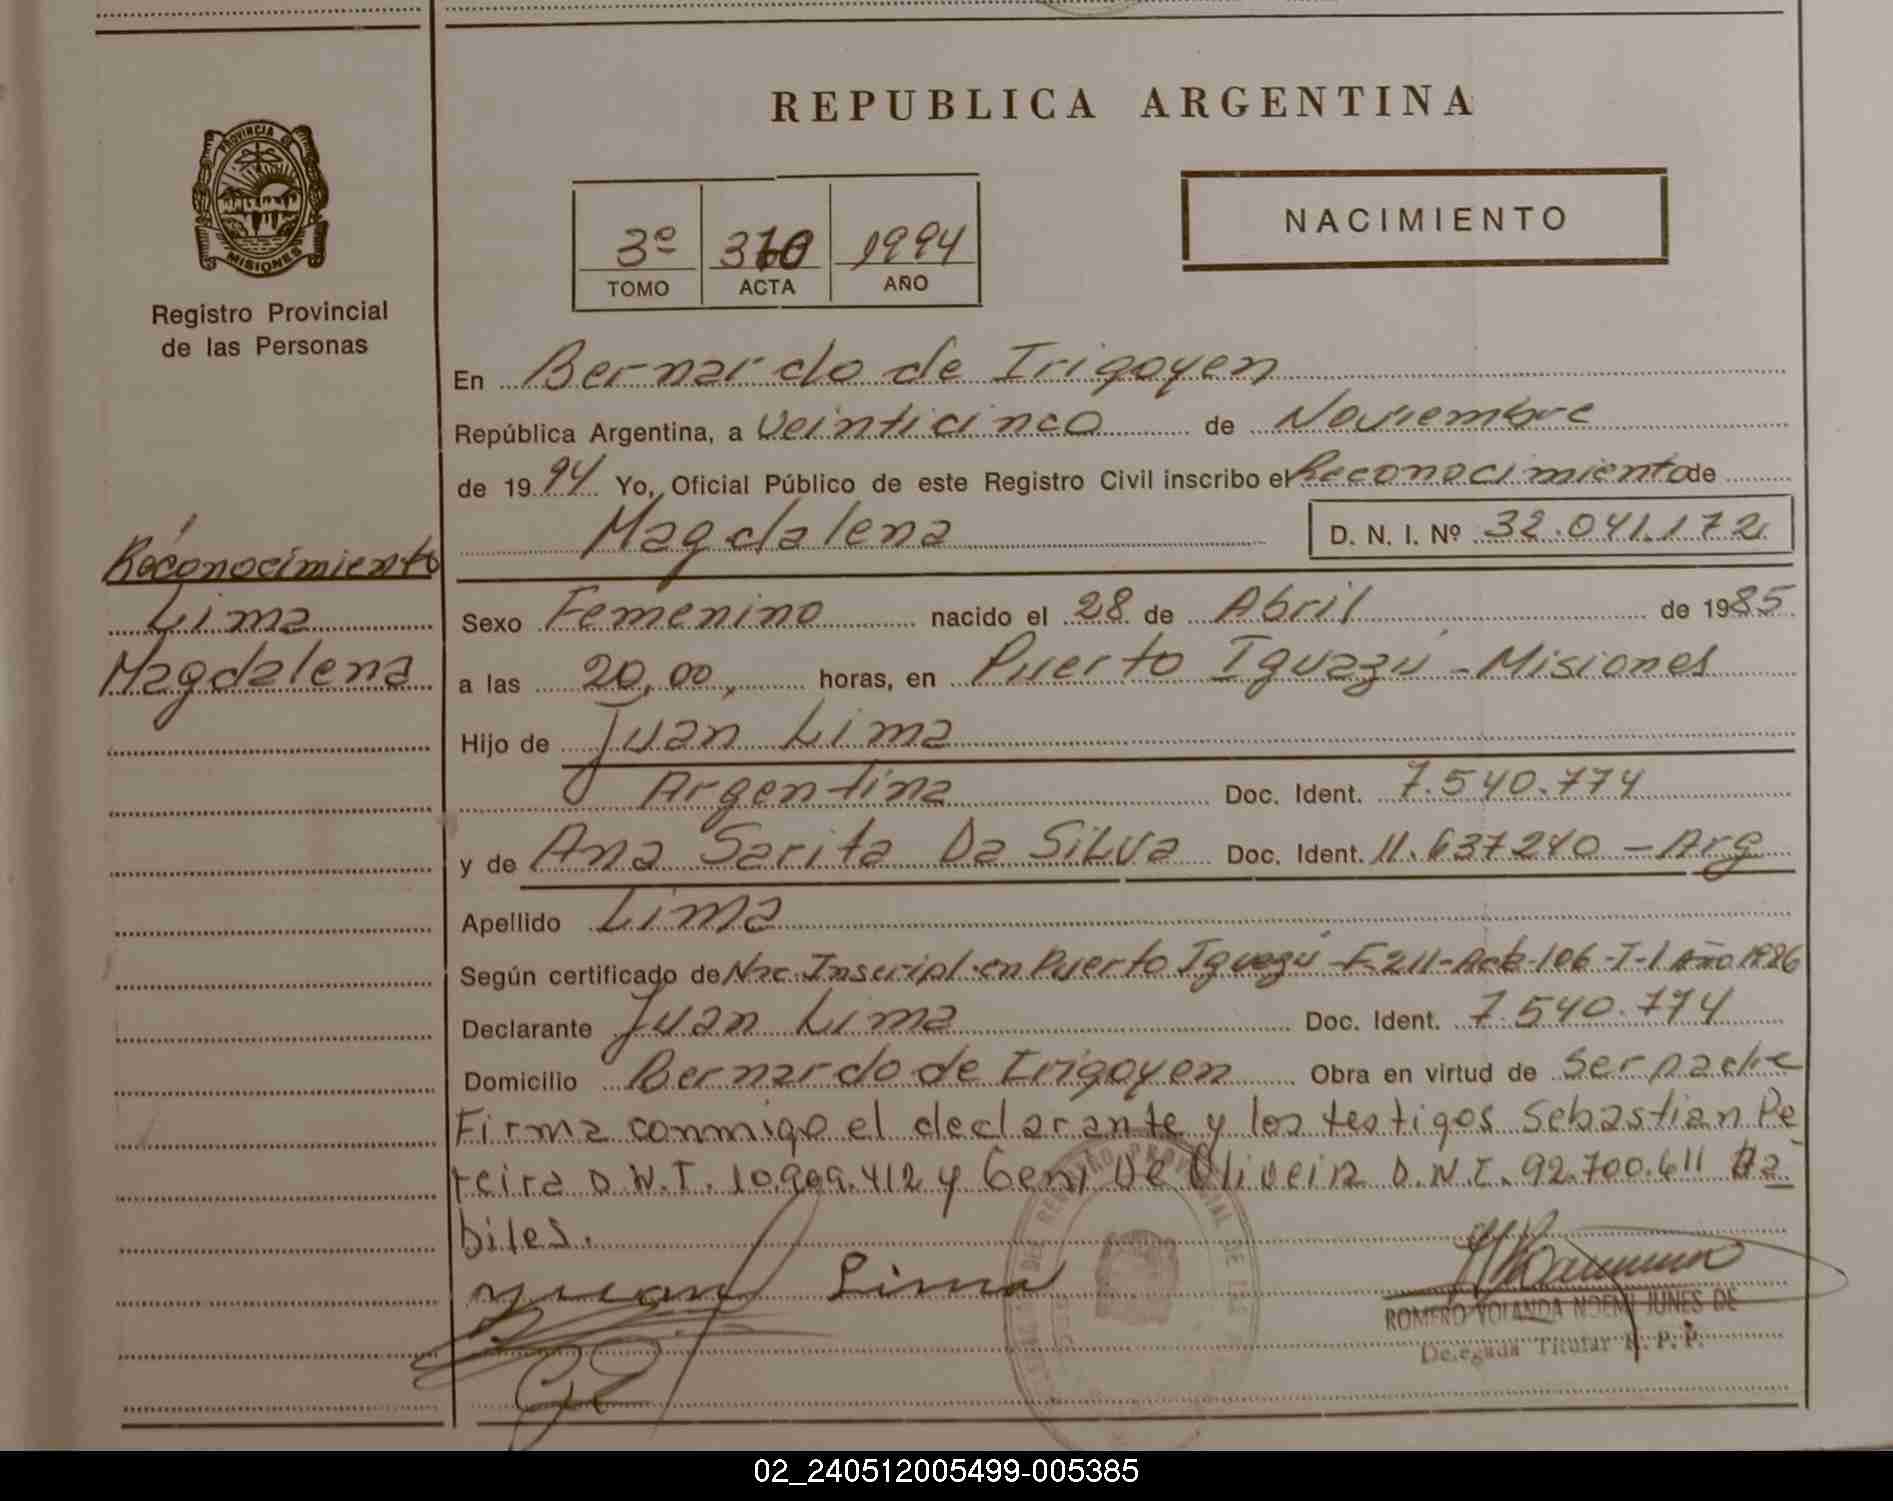 REPUBLICA ARGENTINA
PROVINCIA DE
MISIONES
Registro Provincial
de las Personas
3º 1994
TOMO ACTA AÑO
NACIMIENTO
En Bernardo de Irigoyen
República Argentina, a Veinticinco de Noviembre
de 1994 Yo, Oficial Público de este Registro Civil inscribo el Reconocimiento de
Magdalena D. N. I. Nº 32.041.172
Reconocimiento
Lima
Magdalena
Sexo Femenino nacido el 28 de Abril de 1985
a las 20,00, horas, en Puerto Iguazú - Misiones
Hijo de Juan Lima
Argentina Doc. Ident. 7.540.774
y de Ana Sarita Da Silva Doc. Ident. 11.637240 - Arg
Apellido Lima
Según certificado de Nac. Inscript. en Puerto Iguazú - F 211 - Acta 106 - T-1 Año 1986
Declarante Juan Lima Doc. Ident. 7.540.774
Domicilio Bernardo de Irigoyen Obra en virtud de Ser padre
Firma conmigo el declarante y los testigos Sebastian Pe
reira D.N.I. 10.909.412 y Geni De Oliveira D.N.I. 92.700.611 Ha
biles.
Juan Lima
ROMERO YOLANDA NOEMI JUNES DE
Delegada Titular R. P. P.
02_240512005499-005385